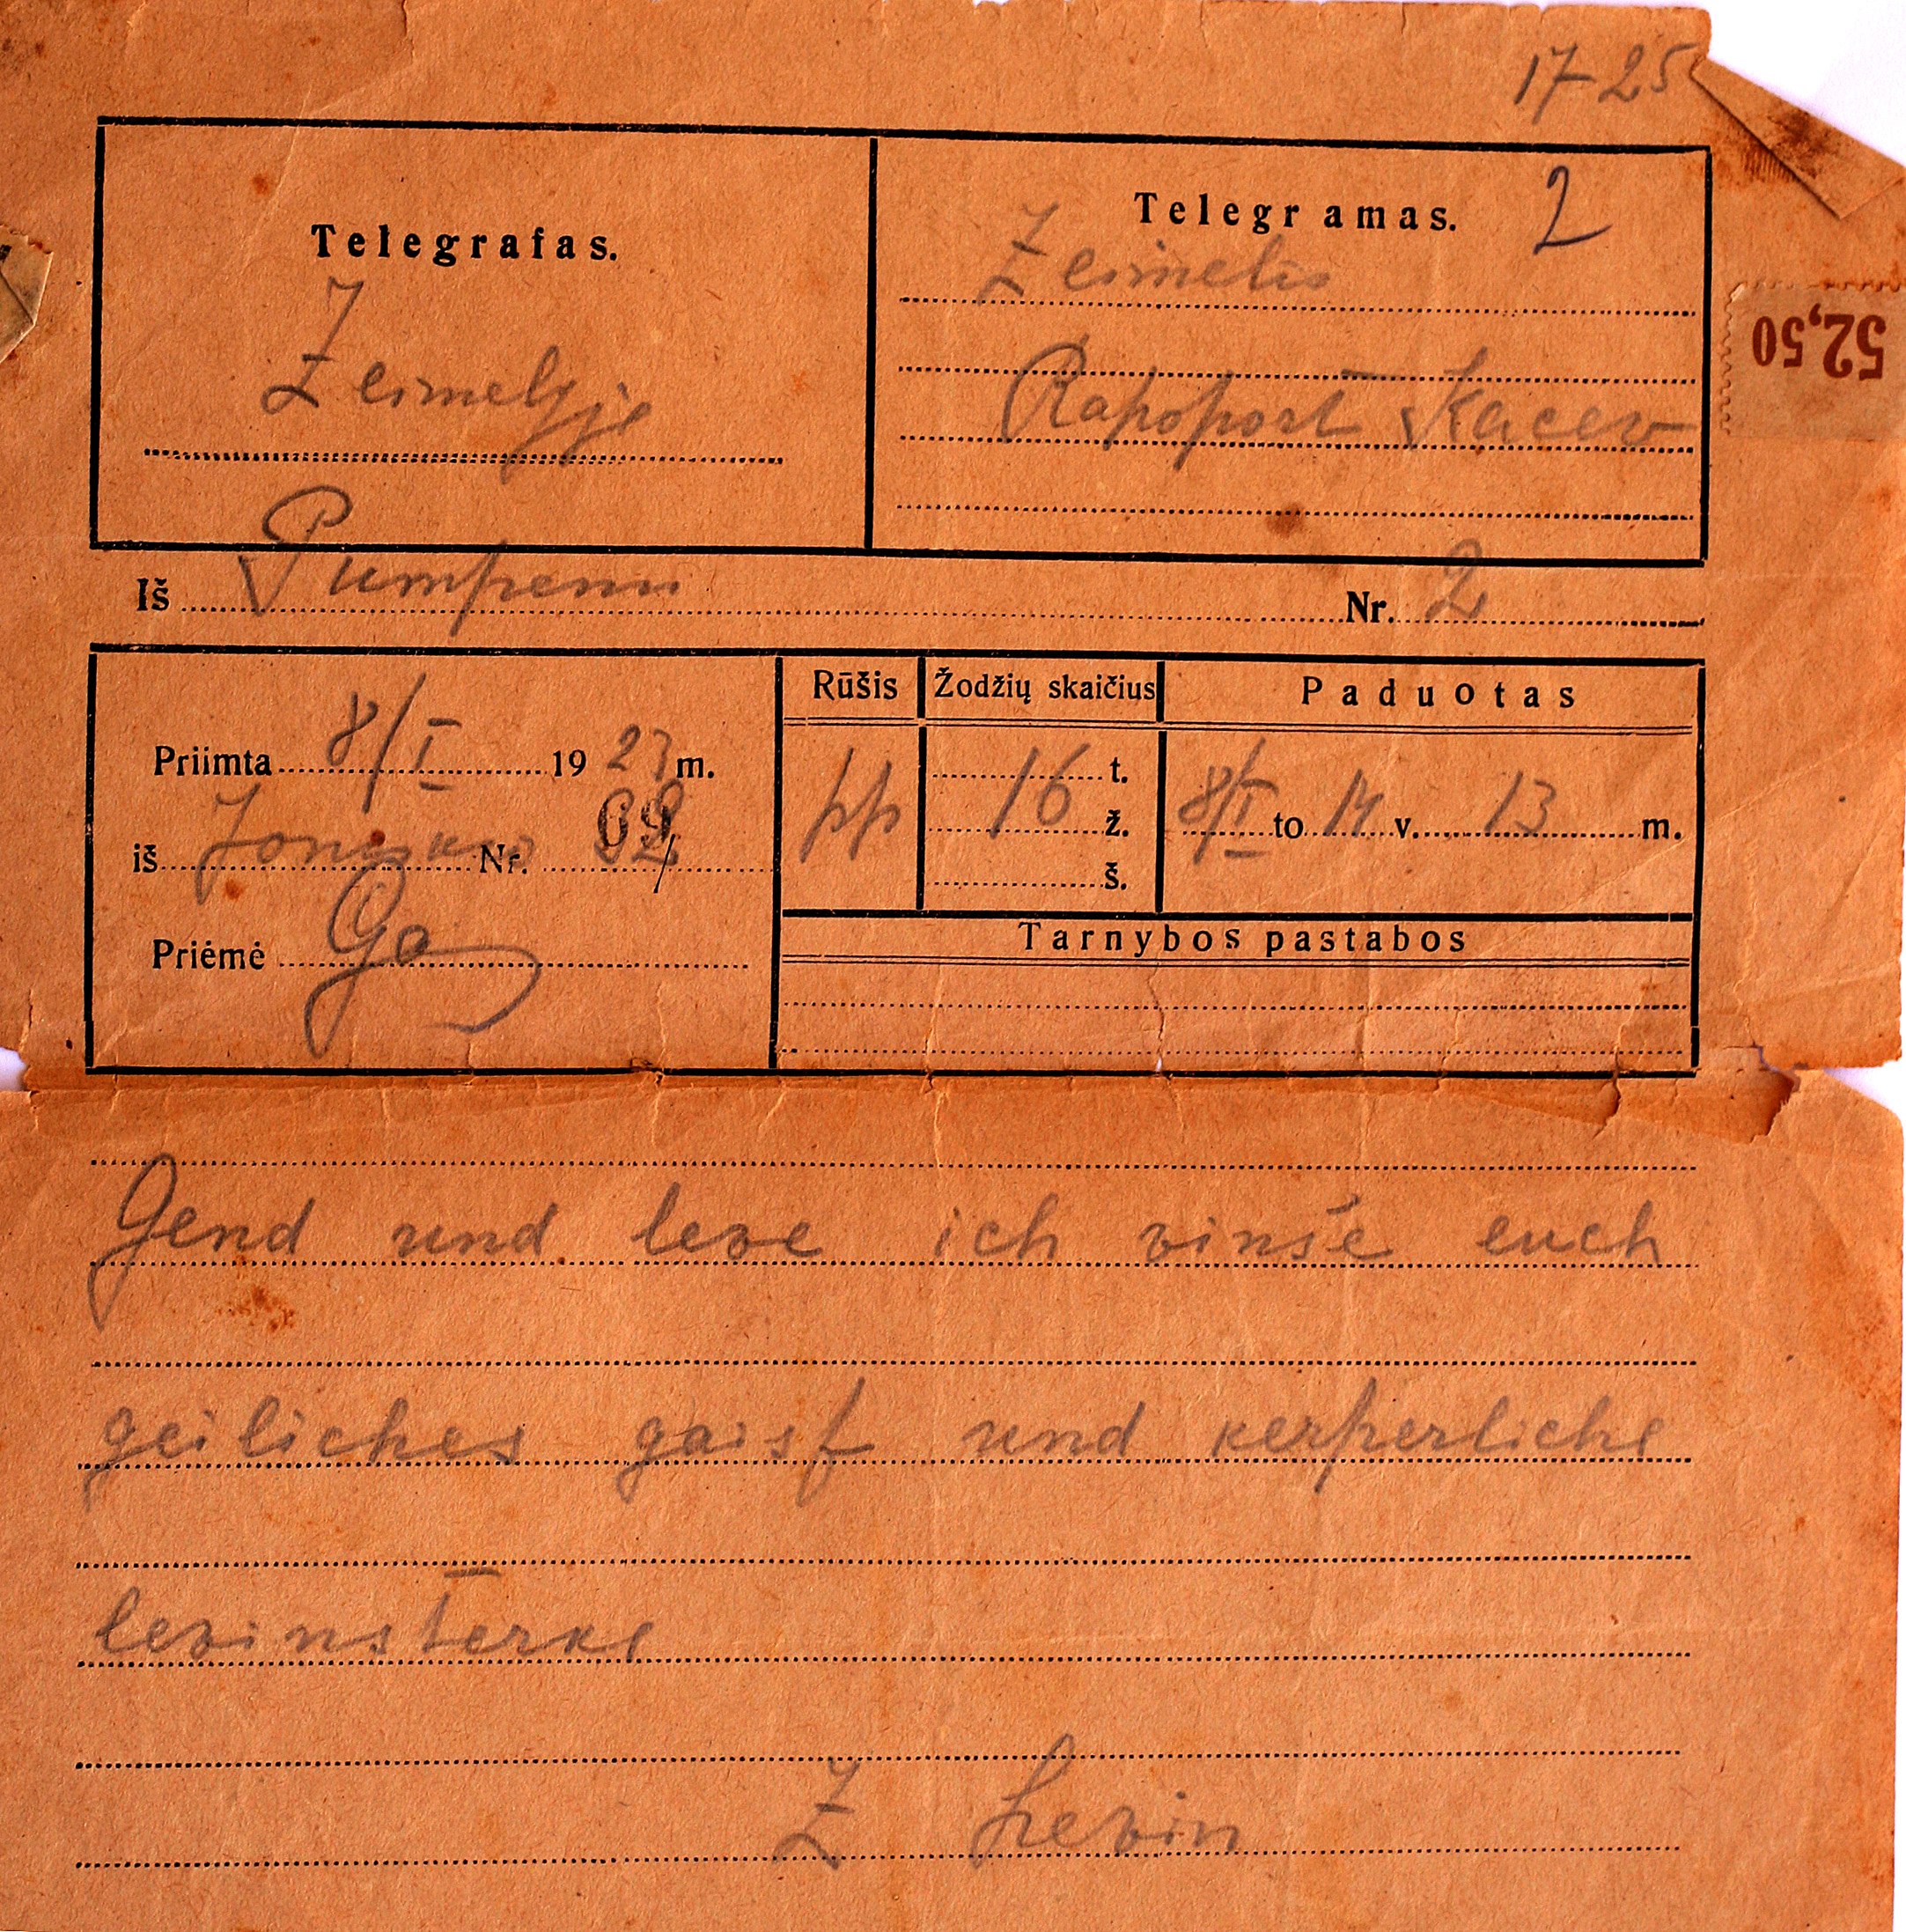 17 25
Telegrafas.
Žeimelyje
Telegramas. 2
Žeimelis
Rapoport Kacev
52,50
Iš Pumpenu Nr. 2
Priimta 8/I 1923 m.
iš Joniskio Nr.
Priėmė Ga
Rūšis
pp
Žodžių skaičius
t.
16 ž.
š.
Paduotas
8/I to 14 v. 13 m.
Tarnybos pastabos
Gend und leve ich vinše euch
geiliches gaist und kerperliche
levinsterke
Z Levin